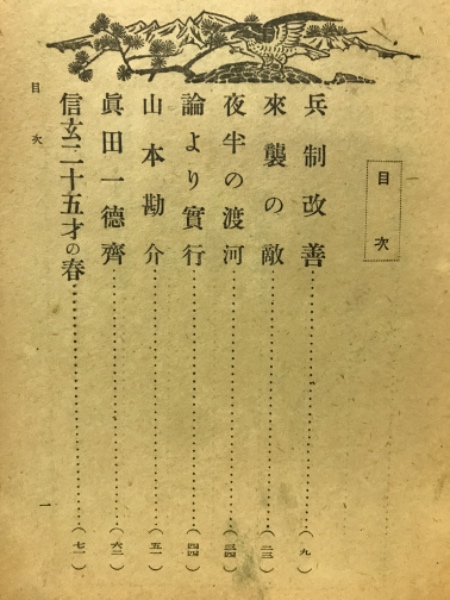 目次
兵制改善(九)
來襲の敵(二三)
夜半の渡河(三四)
論より實行(四四)
山本勘介(五一)
眞田一德齊(六二)
信玄二十五才の春(七一)
目次
一